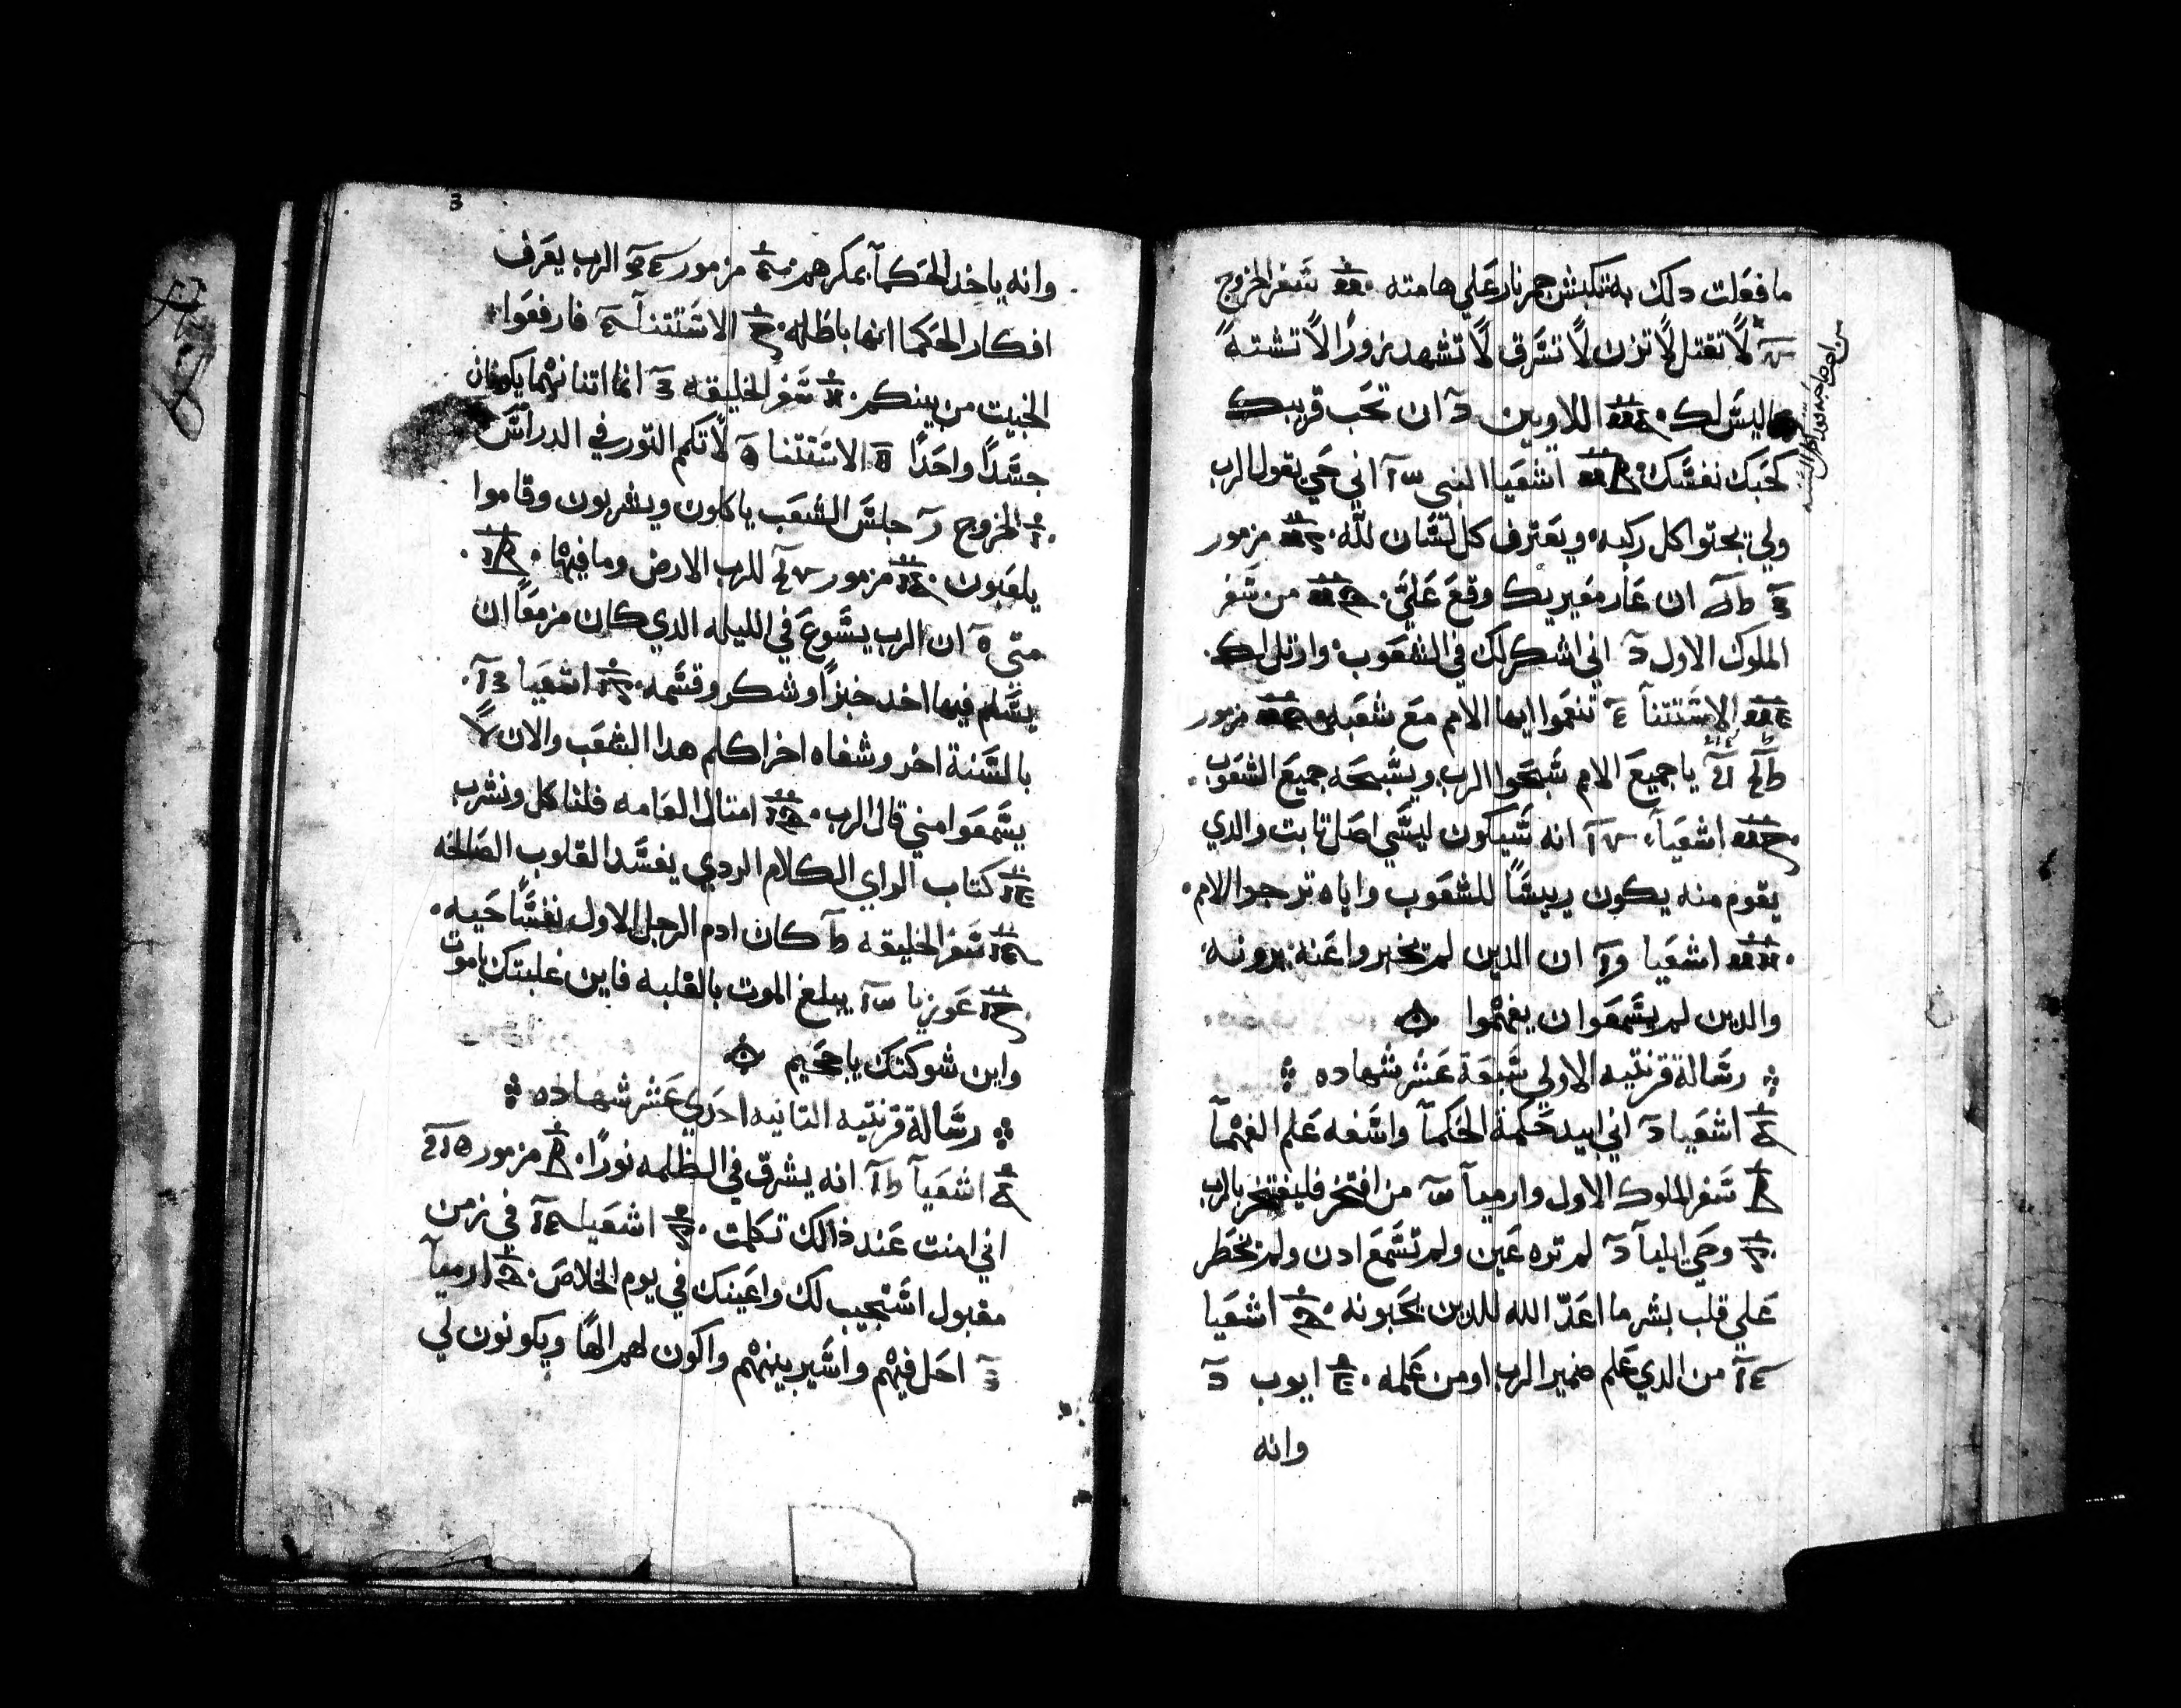 ما فعلت دلك به تكبش جمر نار على هامته شفر الخروج
لا تقتل لا تزن لا تشرق لا تشهد زورًا لا تشته
ما ليش لك اللاويين ان تحب قريبك
كحبك نفشك اشعيا النبي اني حي يقول الرب
ولي تجتوا كل ركبه ويعترف كل لشان لله مزمور
ان عار معيريك وقع علي من شفر
الملوك الاول اني اشكر لك في الشعوب وارتل لك
الاشتتنا تنعموا ايها الامم مع شعبه مزمور
يا جميع الامم شبحوا الرب ويشبحه جميع الشعوب
اشعيا انه شيكون ليشي اصل تابت والدي
يقوم منه يكون رييشًا للشعوب واياه ترجوا الامم
اشعيا ان الدين لم يخبروا عنه يرونه
والدين لم يشمعوا ان يفهموا
رشالة قرنتيه الاولي شبعة عشر شهاده
اشعيا اني ابيد حكمة الحكما واشفه علم الفهما
شفر الملوك الاول وارميا من افتخر فليفتخر بالرب
وحي ايليا لم تره عين ولم تشمع ادن ولم يخطر
على قلب بشر ما اعد الله للدين يحبونه اشعيا
من الدي علم ضمير الرب او من علمه ايوب
وانه
3
وانه ياخد الحكما بمكرهم مزمور الرب يعرف
افكار الحكما انها باطله الاشتتنا فارفعوا
الخبيت من بينكم شفر الخليقه انما اتنانهما يكونان
جشدًا واحدًا الاشتتنا لا تكم التور في الدراش
الخروج جلش الشعب ياكلون ويشربون وقاموا
يلعبون مزمور للرب الارض وما فيها
متي ان الرب يشوع في الليله الدي كان مزمعًا ان
يشلم فيها اخد خبزًا وشكر وقشمه اشعيا
بالشنة اخر وشفاه اخر اكلم هدا الشعب والان لا
يشمعوا مني قال الرب امتال العامه فلناكل ونشرب
كتاب الراي الكلام الردي يفشد القلوب الصالحه
شفر الخليقه كان ادم الرجل الاول نفشًا حيه
عوزيا يبلغ الموت بالغلبه فاين غلبتك يا موت
واين شوكتك يا جحيم
رشالة قرنتيه التانيه احدي عشر شهاده
اشعيا انه يشرق في الظلمه نورًا مزمور
اني امنت عند ذالك تكلمت اشعيا في زمن
مقبول اشتجيب لك واعينك في يوم الخلاص ارميا
احل فيهم واشير بينهم واكون لهم الهًا ويكونون لي